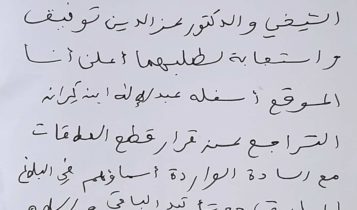 الشيخي والدكتور عز الدين توفيق
واستجابة لطلبهما أعلن أنا
الموقع أسفله عبد الإله ابن كيران
التراجع عن قرار قطع العلاقات
مع السادة الواردة أسماؤهم في البلاغ